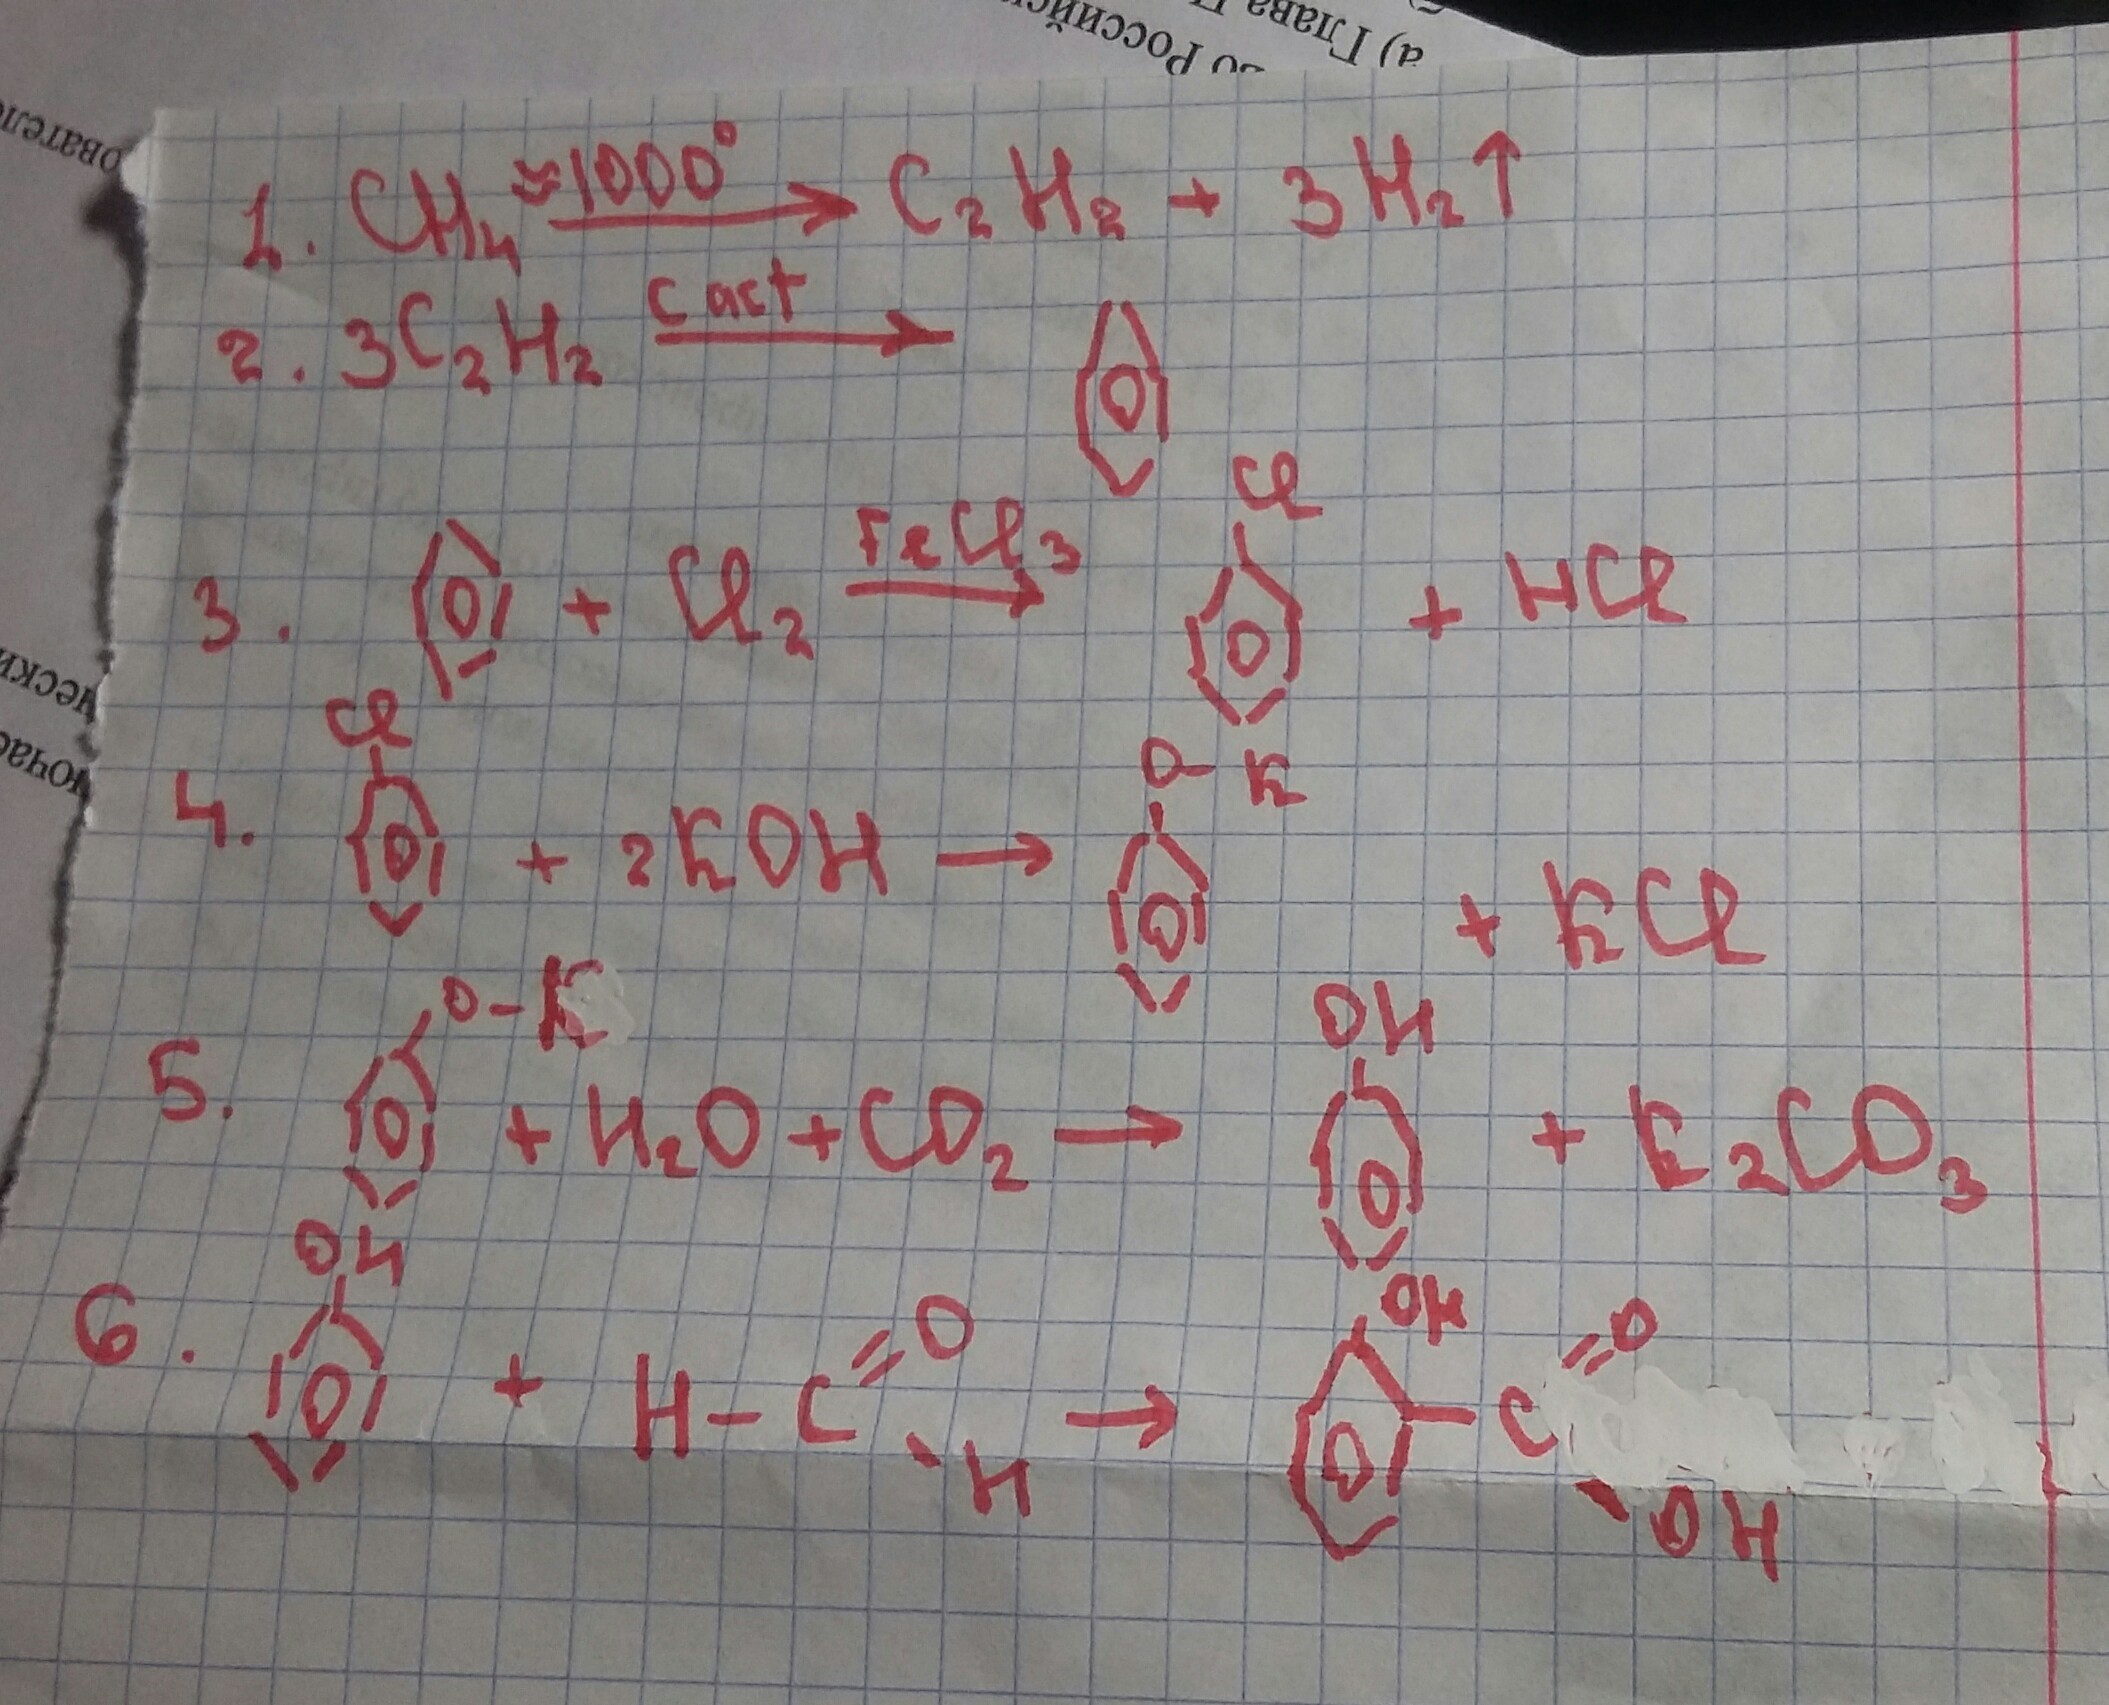 а) Глава
Российск
овател
чески
ючас
1. CH₄ ≈1000° → C₂H₂ + 3H₂↑
2. 3C₂H₂ C act →
3. + Cl₂ FeCl₃ → Cl + HCl
4. Cl + 2KOH → O-K + KCl
5. O-K + H₂O + CO₂ → OH + K₂CO₃
6. OH + H-C=O H → OH C=O OH